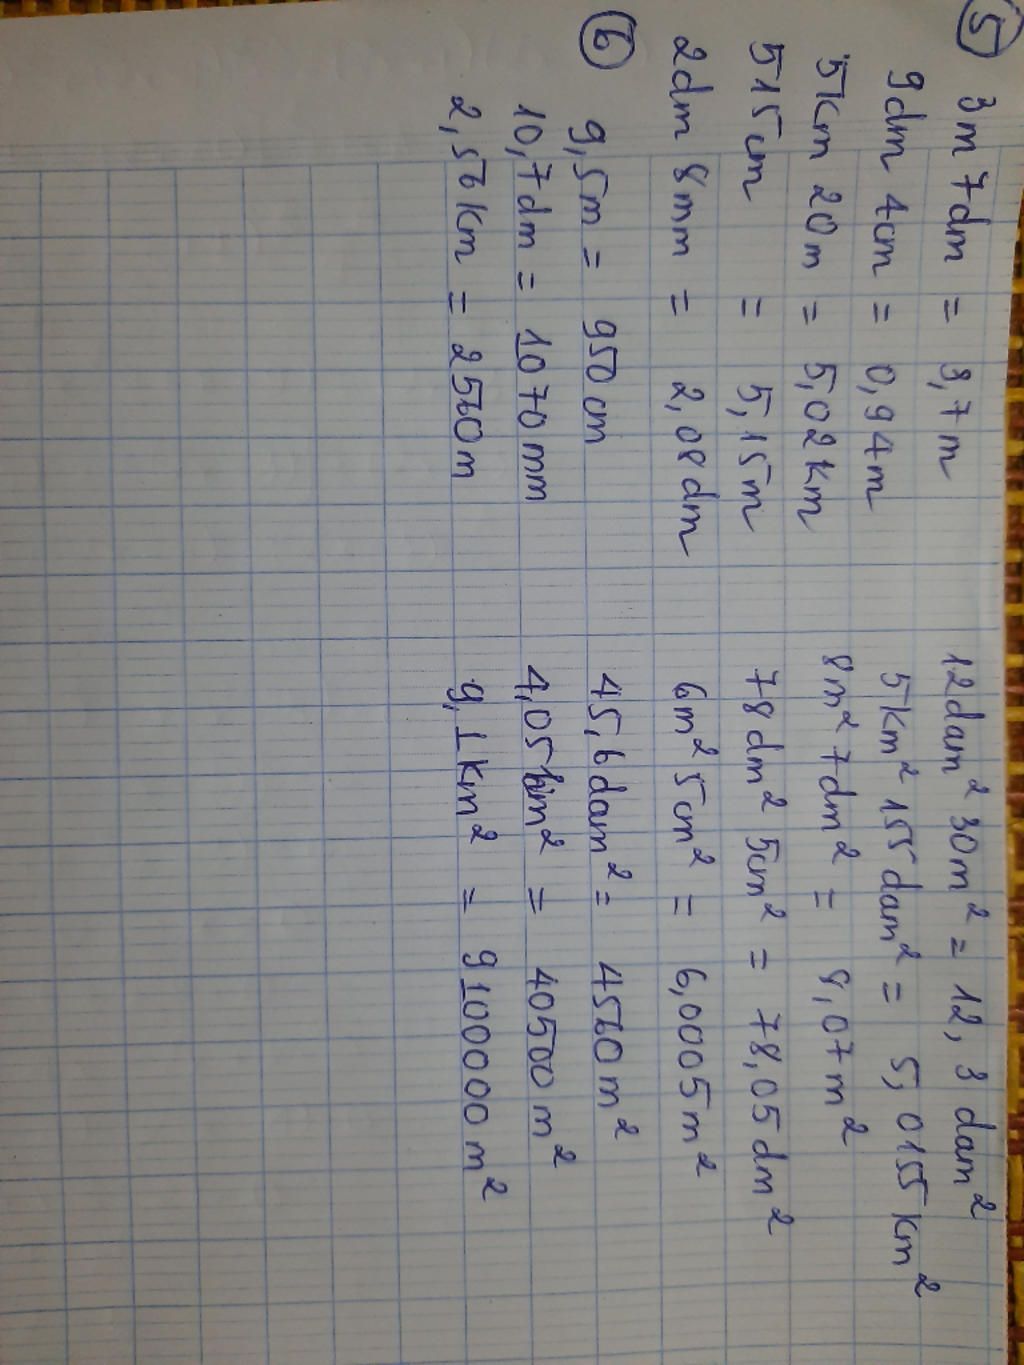 5
3m 7dm = 3,7m
9dm 4cm = 0,94m
5km 20m = 5,02km
515cm = 5,15m
2dm 8mm = 2,08dm
12dam² 30m² = 12,3dam²
5km² 155dam² = 5,0155km²
8m² 7dm² = 8,07m²
78dm² 5cm² = 78,05dm²
6m² 5cm² = 6,0005m²
6
9,5m = 950cm
10,7dm = 1070mm
2,56km = 2560m
45,6dam² = 4560m²
4,05hm² = 40500m²
9,1km² = 9100000m²